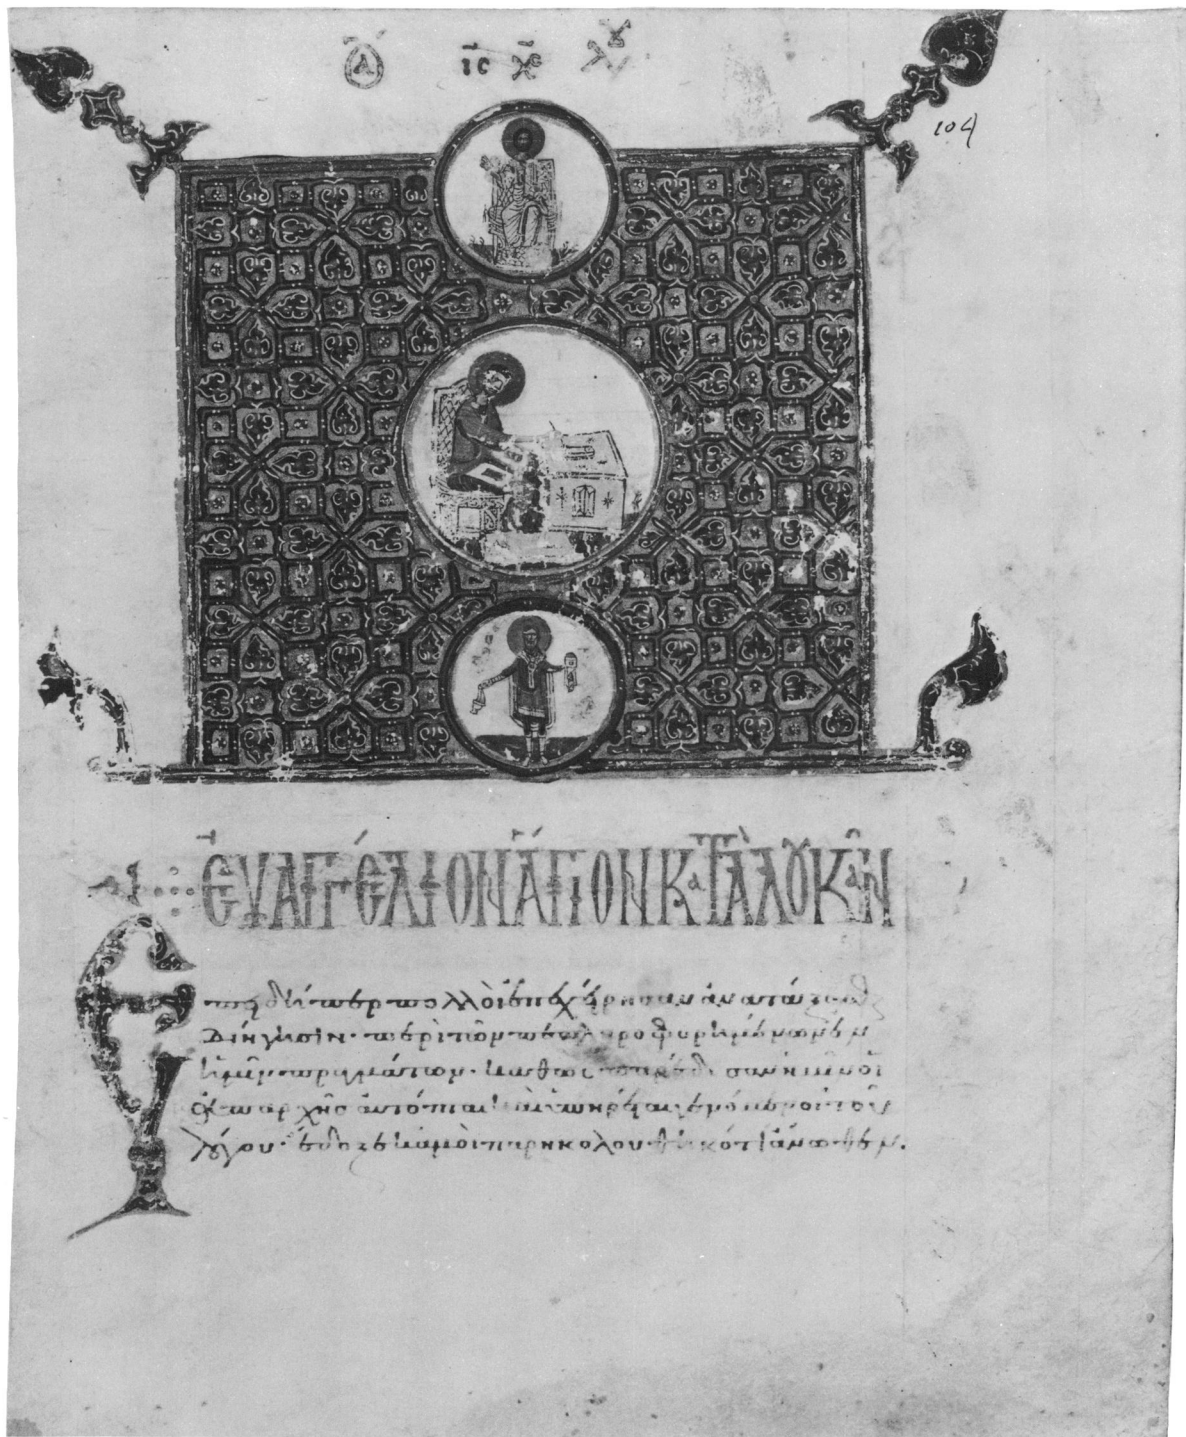 Α ΙϹ ΧϹ
104
ΕΥΑΓΓΈΛΙΟΝ ἍΓΙΟΝ ΚΑΤᾺ ΛΟΥΚΑΝ
Ἐπειδήπερ πολλοὶ ἐπεχείρησαν ἀνατάξασθ
διήγησιν· περὶ τῶν πεπληροφορημένων ἐν
ἡμῖν πραγμάτων· καθὼς παρέδοσαν ἡμῖν οἱ
ἀπαρχῆς αὐτόπται καὶ ὑπηρέται γενόμενοι τοῦ
λόγου· ἔδοξε κἀμοὶ παρηκολουθηκότι ἄνωθεν.